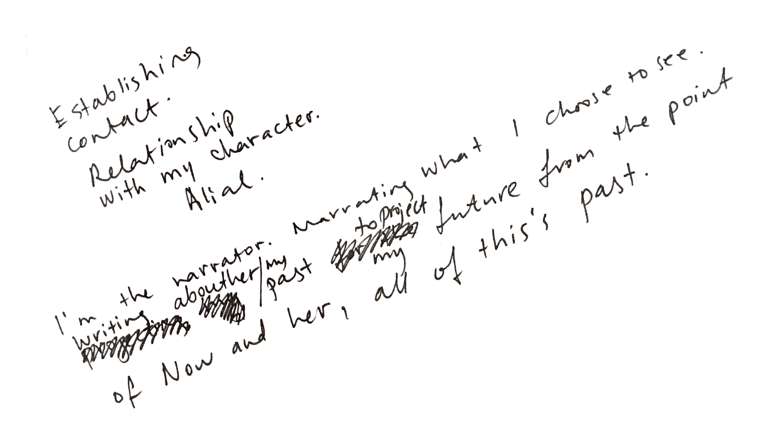 Establishing
contact.
Relationship
with my character.
Alial.
I'm the narrator. Narrating what I choose to see.
Writing about her/my past to project my future from the point
of Now and her, all of this's past.